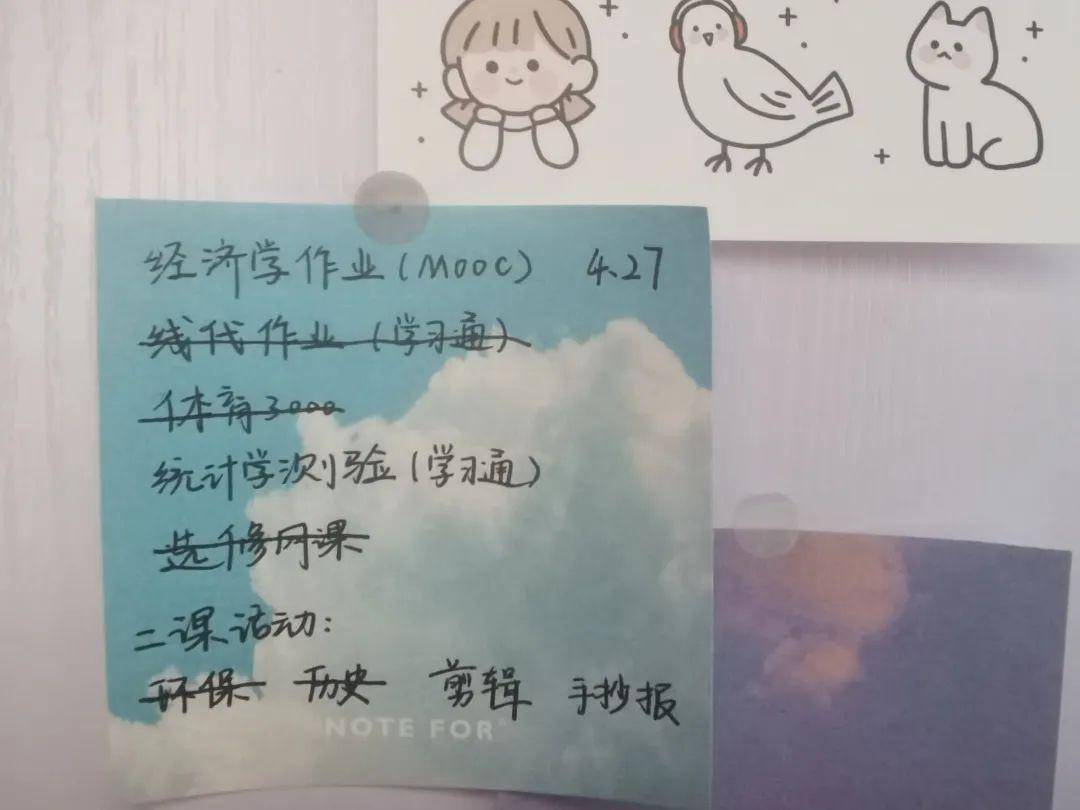 经济学作业(MOOC) 4.27
线代作业(学习通)
体育3000
统计学测验(学习通)
选修网课
二课活动:
环保 历史 剪辑 手抄报
NOTE FOR